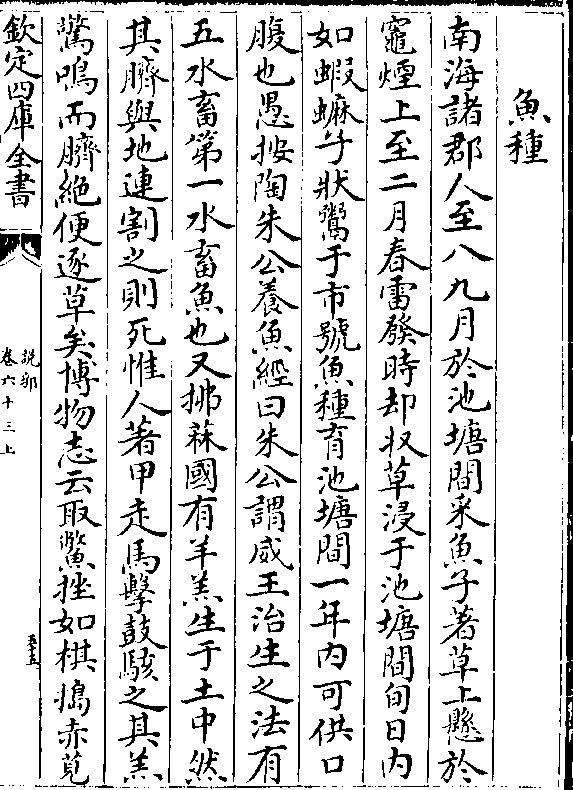 魚種
南海諸郡人至八九月於池塘間采魚子著草上懸於
竈煙上至二月春雷發時却收草浸于池塘間旬日内
如蝦蟆子狀鬻于市號魚種育池塘間一年内可供口
腹也愚按陶朱公養魚經曰朱公謂威王治生之法有
五水畜第一水畜魚也又拂菻國有羊羔生于土中然
其臍與地連割之則死惟人著甲走馬擊鼓駭之其羔
驚鳴而臍絶便逐草矣博物志云取鱉挫如棋擣赤莧
欽定四庫全書
説郛
卷六十三上